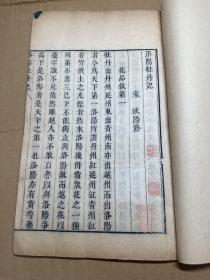 洛陽牡丹記
宋 歐陽修
花品敘第一
牡丹出丹州延州東出青州南亦出越州而出洛陽
者今為天下第一洛陽所謂丹州紅延州紅青州紅
者皆彼土之尤傑者然來洛陽纔備衆花之一種
列第不出三已下不能獨立與洛陽敵而越之花以
遠罕識不見齒然雖越人亦不敢自譽以與洛陽爭
高下是洛陽者是天下之第一也洛陽亦有黃芍藥